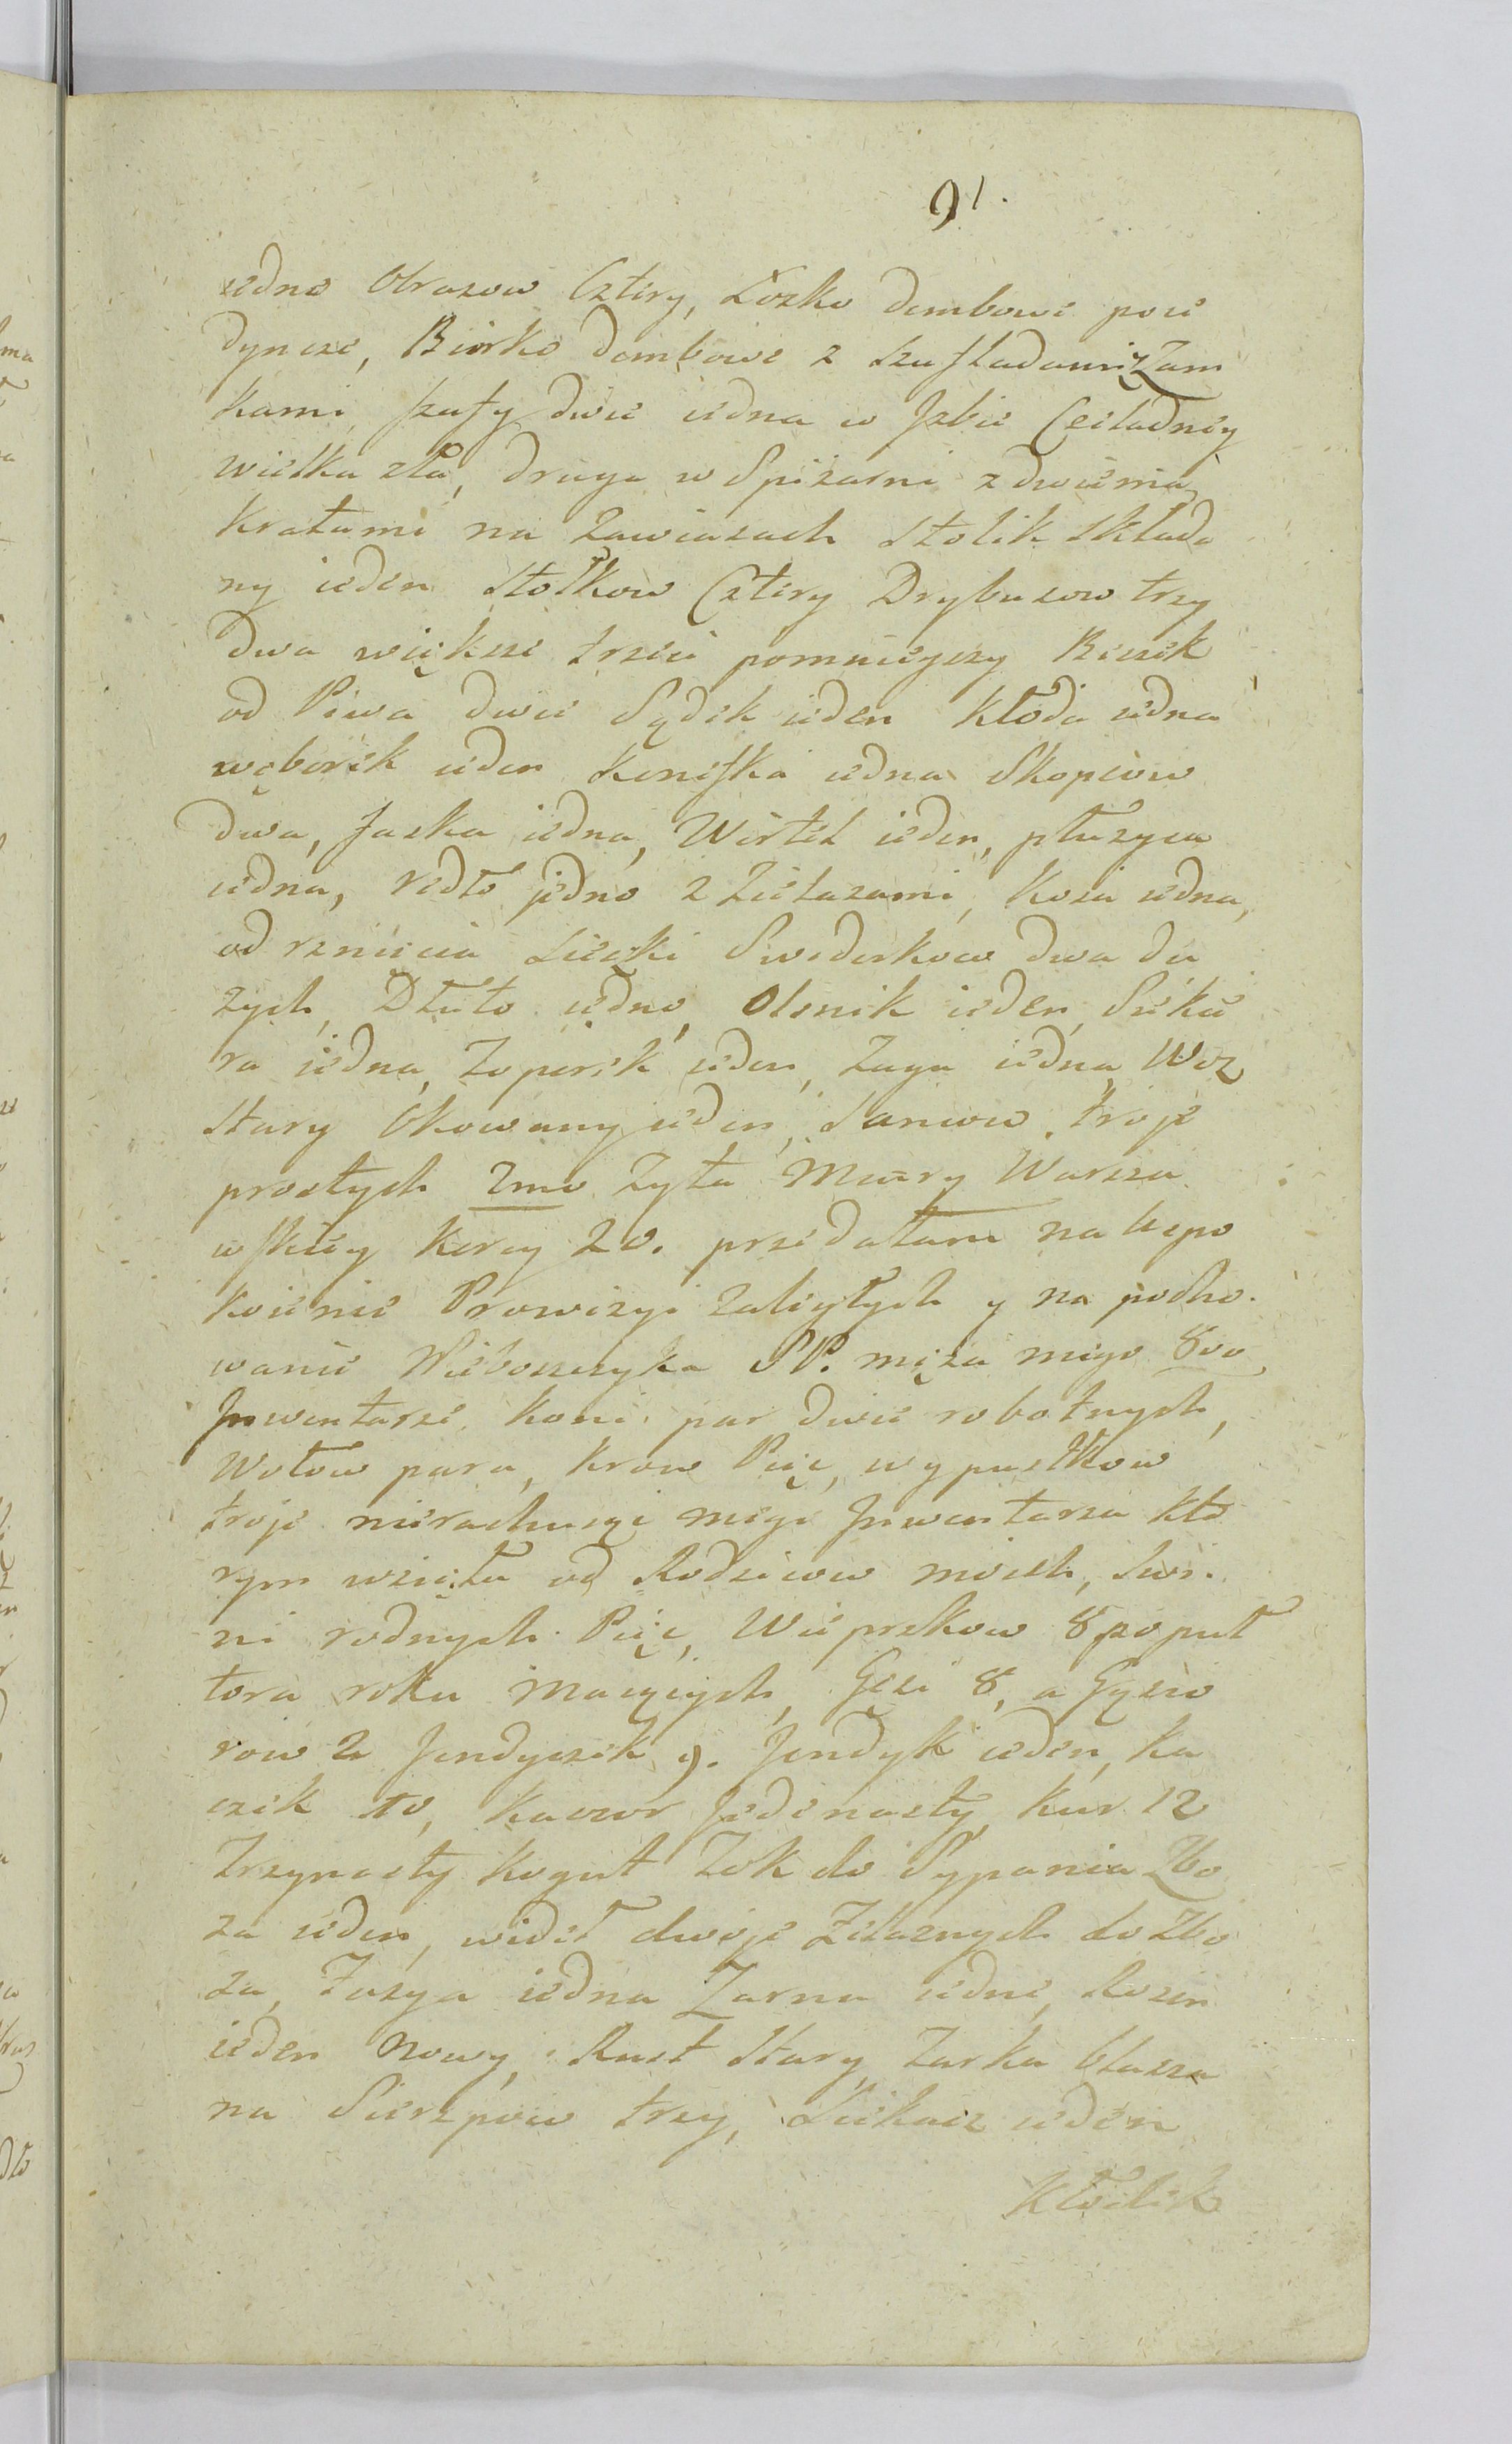 91.
iedno Obrazow Cztery, Łozko dembowe poie
dyncze, Biorko dembowe z szufladami z Zam
kami, szafy dwie iedna w Jzbie Czeladney
wielka zła, druga w Spiżarni z dwiema
Kratami na Zawiasach Stolik składa
ny ieden Stołkow Cztery Drybusow trzy
dwa większe trzeci pomnieyszy Beczek
od Piwa dwie Sądek ieden Kłoda iedna
węborek ieden Koniska iedna Skopcow
dwa, Faska iedna, Wiertel ieden, płużyca
iedna, redło jedno z Żelazami, Kosa iedna,
od rznięcia Sieczki Swederkow dwa du
zych, Dłuto iedno, Ośnik ieden Sieku
ra iedna, Toporek ieden, Zaga iedna, Woz
Stary Okowany ieden, Saniow troje
prostych 2mo Żyta Miary Warsza
wskiey korcy 20. przedałam na uspo
koienie Prowizyi zaległych y na pocho
wanie Nieboszczyka SP. męża mego 8vo
Jnwentarze, koni par dwie robotnych,
Wołow para, krow Pięć, wypustkow
troje nierachuiąc mego Jnwentarza kto
rym wzięła od Rodzicow moich, Swi
ni rodnych Pięć, Wieprzkow 8 po puł
tora roku maiących, Gęsi 8, a Gąsio
row 2 Jendyczek 9. Jendyk ieden, ka
czek 10, kaczor Jedenasty, kur 12
Trzynasty kogut Zok do Sypania Zbo
za ieden, wideł dwoje Żelaznych do Zbo
za, Łuzya iedna Zarna iedne, Rozen
ieden Nowy, Ruszt Stary, Tarka blasza
na Sierzpow trzy, Siekacz ieden
Kłocik